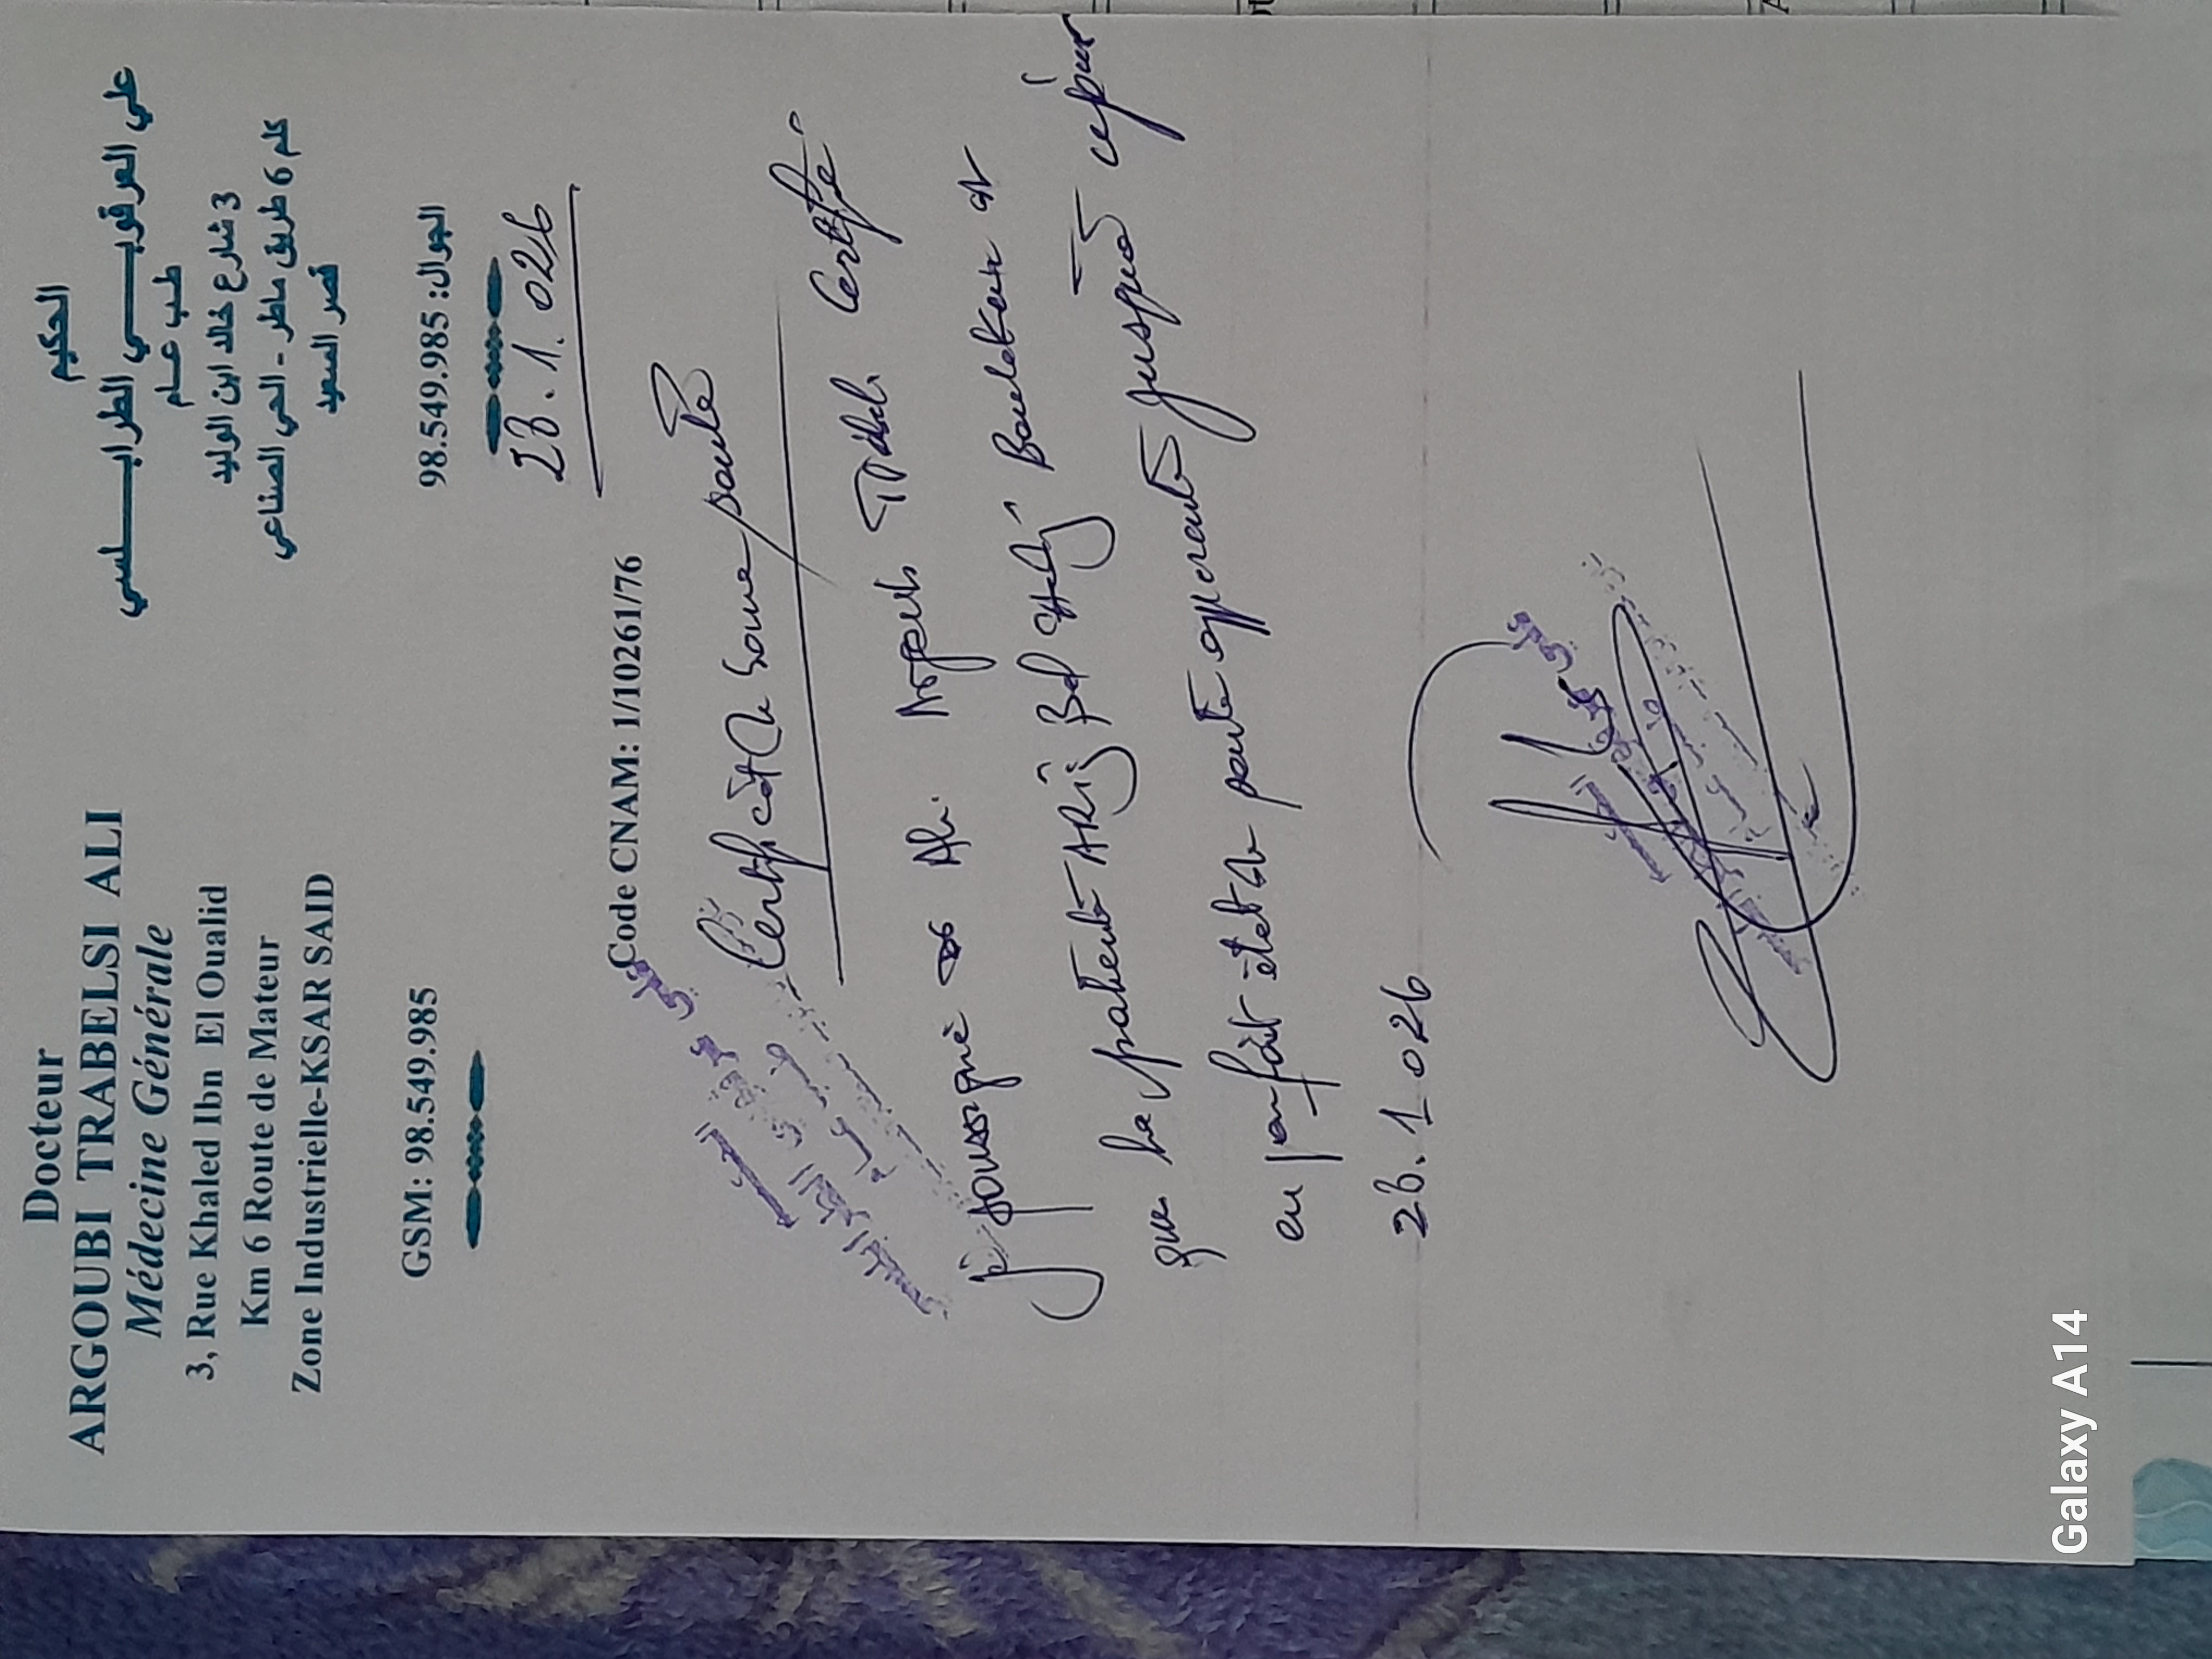 Docteur
ARGOUBI TRABELSI ALI
Médecine Générale
3, Rue Khaled Ibn El Oualid
Km 6 Route de Mateur
Zone Industrielle-KSAR SAID
GSM: 98.549.985
الحكيم
علي العرقوبي الطرابلسي
طب عام
3 شارع خالد ابن الوليد
كلم 6 طريق ماطر - الحي الصناعي
قصر السعيد
الجوال: 98.549.985
28.1.026
Code CNAM: 1/10261/76
Certificat de bonne santé
je soussigné Dr Ali Certifié
que la patiente ARIJ Bel Hadj
en parfait état de santé apparente jusqu'à ce jour
28.1.026
Galaxy A14